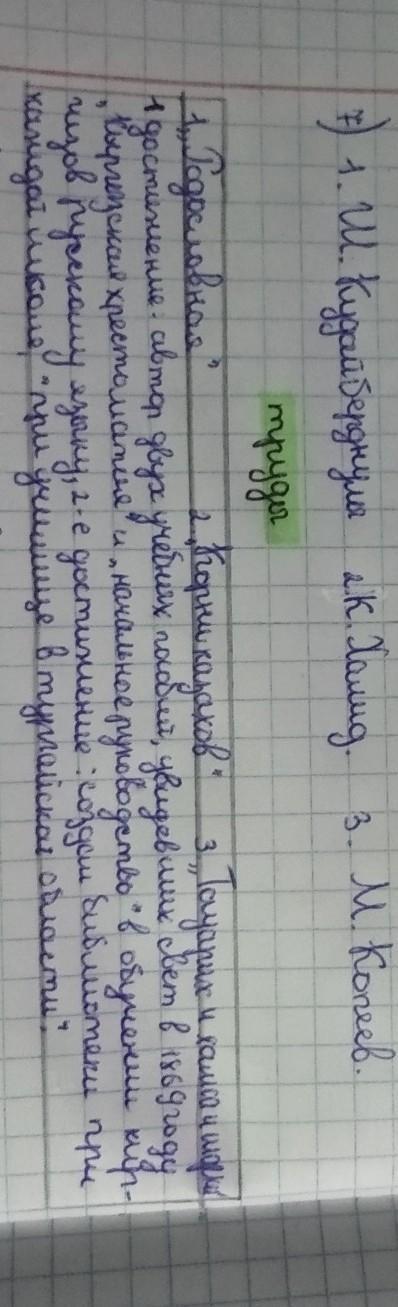 7) 1. Ш. Кудайбердиулы 2. К. Халид. 3. М. Копеев.
труды
1„Родословная" 2„Корни казахов" 3„Тауарих и хамса и шарки
1 достижение: автор двух учебных пособий, увидевших свет в 1869 году
„Киргизская хрестоматия" и „начальное руководство" в обучении кир-
гизов русскому языку, 2-е достижение: создал библиотеки при
каждой школе, "при училище в тургайской области".